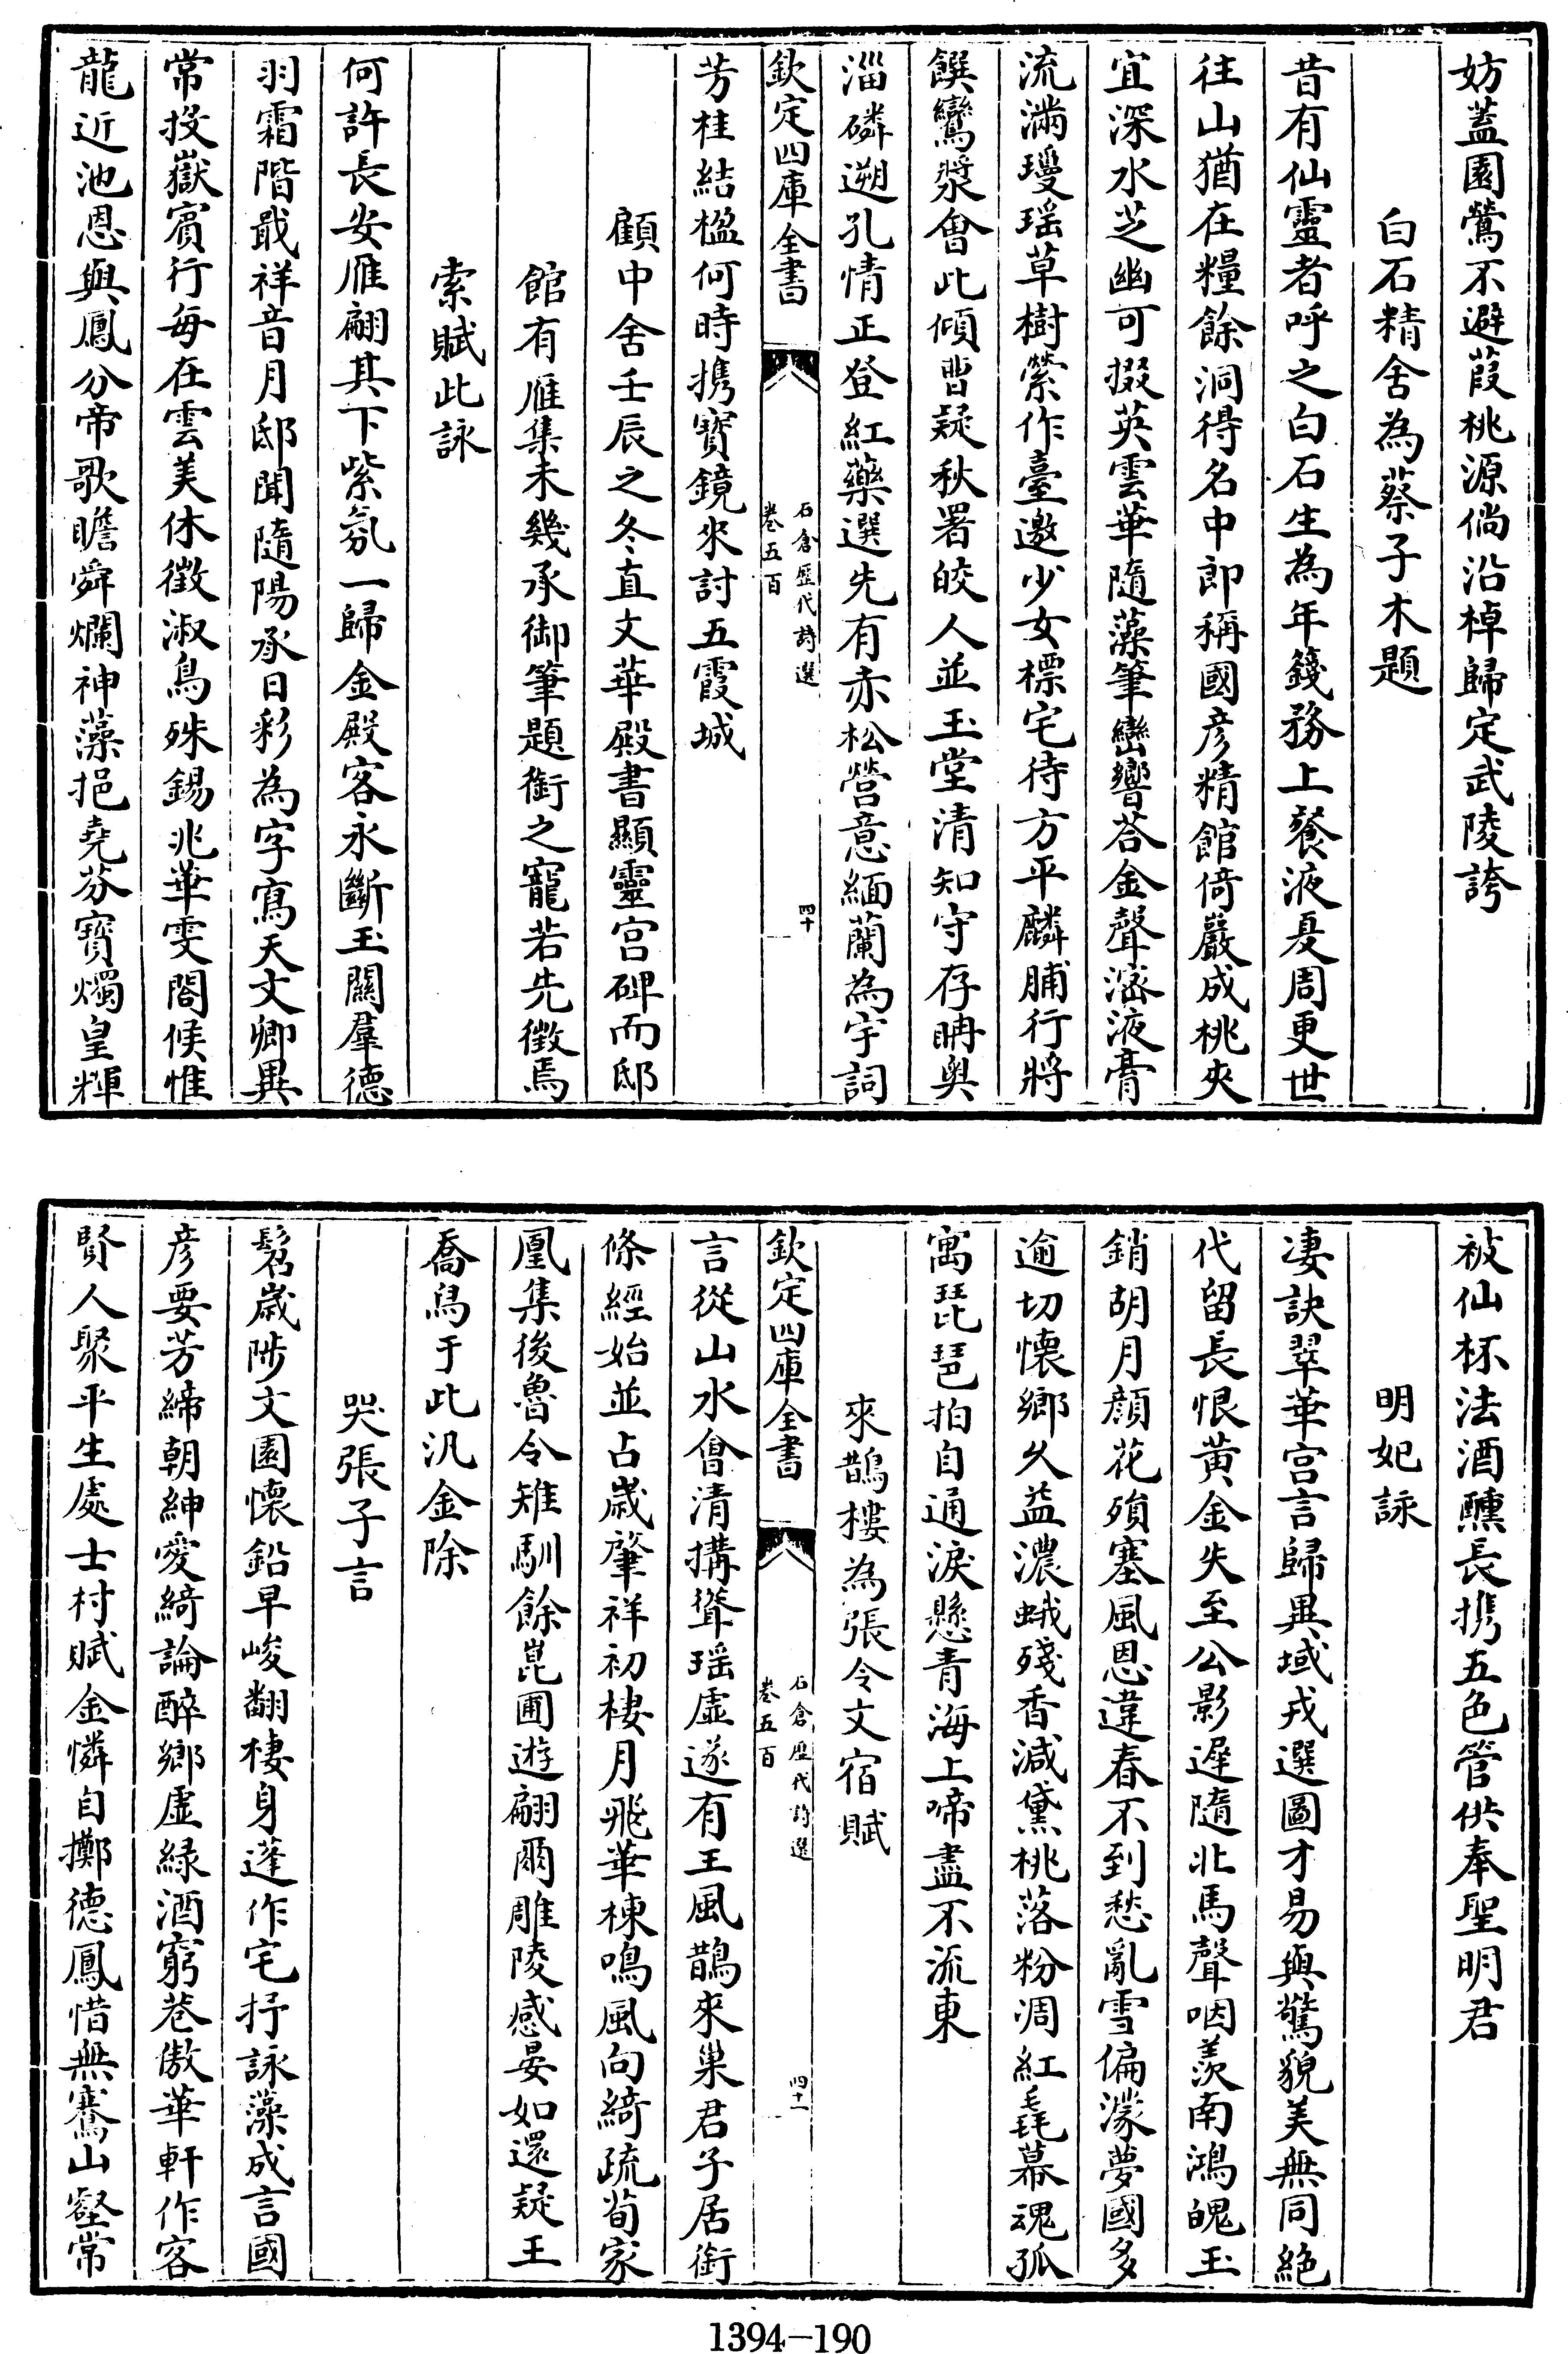 妨蓋園鶯不避葭桃源倘沿棹歸定武陵誇
白石精舍為蔡子木題
昔有仙靈者呼之白石生為年籛務上餐液夏周更世
往山猶在糧餘洞得名中郎稱國彥精館倚巖成桃夾
宜深水芝幽可掇英雲華隨藻筆巒響荅金聲滵液膏
流滿璦瑶草樹縈作臺邀少女標宅待方平麟脯行將
饌鸞漿會此傾曹疑秋署皎人並玉堂清知守存晴奥
淄磷遡孔情正登紅藥選先有赤松營意緬蘭為宇詞
欽定四庫全書
石倉歷代詩選
卷五百
四十
芳桂結楹何時携寶鏡來討五霞城
顧中舍壬辰之冬直文華殿書顯靈宫碑而邸
館有雁集未幾承御筆題銜之寵若先徵焉
索賦此詠
何許長安雁翩其下紫氛一歸金殿客永斷玉關羣德
羽霜階戢祥音月邸聞隨陽承日彩為字寫天文卿異
常投嶽賓行每在雲美休徵淑鳥殊錫兆華雯閣候惟
龍近池恩與鳳分帝歌瞻舜爛神藻挹堯芬寶燭皇輝
被仙杯法酒醺長携五色管供奉聖明君
明妃詠
凄訣翠華宫言歸異域戎選圖才易與驚貌美無同絶
代留長恨黄金失至公影遲隨北馬聲咽羡南鴻魄玉
銷胡月顔花殞塞風恩違春不到愁亂雪偏濛夢國多
逾切懷鄉久益濃蛾殘香減黛桃落粉凋紅毳幕魂孤
寓琵琶拍自通淚懸青海上啼盡不流東
來鵲樓為張令文宿賦
欽定四庫全書
石倉歷代詩選
卷五百
四十一
言從山水會清搆聳瑶虚遂有王風鵲來巢君子居銜
條經始並占歲肇祥初棲月飛華棟鳴風向綺疏荀家
凰集後魯令雉馴餘崑圃遊翩爾雕陵感晏如還疑王
喬舄于此汎金除
哭張子言
髫歲陟文園懷鉛早峻翻棲身蓬作宅抒詠藻成言國
彥要芳締朝紳愛綺論醉鄉虚緑酒窮巷傲華軒作客
賢人聚平生處士村賦金憐自擲德鳳惜無騫山壑常
1394-190